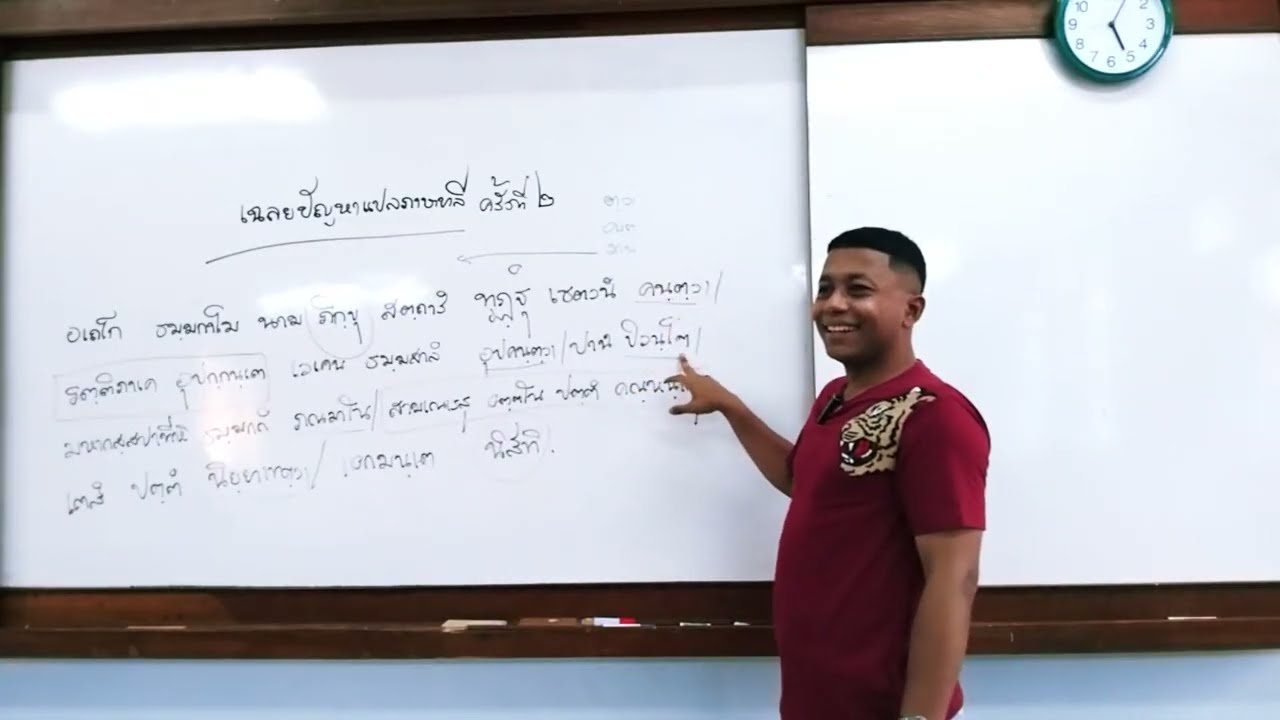 เฉลยปัญหาแปลภาษาบาลี ครั้งที่ ๒
อเถโก ธมฺมกาโม นาม ภิกฺขุ สตฺถารํ ทฏฺฐุํ เชตวนํ คนฺตฺวา/
รตฺติภาเค อุปกฺกนฺเต เอเกน ธมฺมสาลํ อุปคนฺตฺวา/ปานํ ปิวนฺโต/
ธมฺมกถํ สามเณเรสุ ปตฺตํ
เตสํ ปตฺตํ นิยฺยาเทตฺวา/ เอกมนฺเต นิสีทิ.
10
2
9
3
8
4
7
6
5